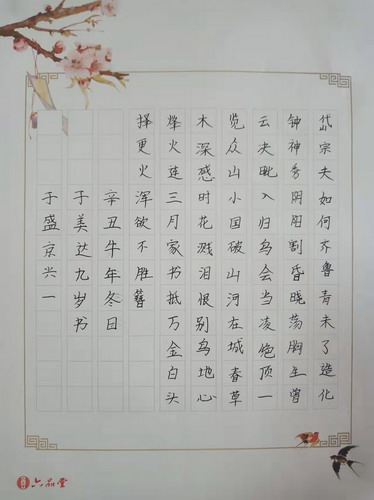 岱宗夫如何齐鲁青未了造化
钟神秀阴阳割昏晓荡胸生曾
云夬眦入归鸟会当凌绝顶一
览众山小国破山河在城春草
木深感时花溅泪恨别鸟地心
烽火连三月家书抵万金白头
择更火浑欲不胜簪
辛丑牛年冬日
于美达九岁书
于盛京兴一
六品堂